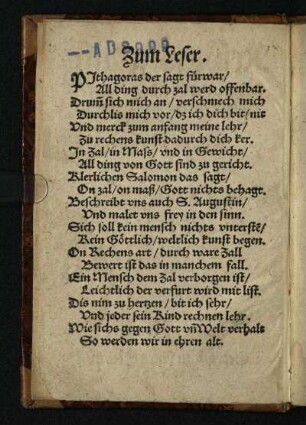 Zum Leser.
PIthagoras der sagt fürwar/
All ding durch zal werd offenbar.
Drum̃ sich mich an/ verschmech mich
Durchlis mich vor/ dz ich dich bit/ nit
Vnd merck zum anfang meine lehr/
Zu rechens kunst dadurch dich ker.
In Zal/ in Mass/ vnd in Gewicht/
All ding von Gott sind zu gericht.
Klerlichen Salomon das sagt/
On zal/ on maß/ Gott nichts behagt.
Beschreibt vns auch S. Augustin/
Vnd malet vns frey in den sinn.
Sich soll kein mensch nichts vnterstẽ/
Kein Göttlich/ weltlich kunst began.
On Rechens art/ durch ware Zall
Bewert ist das in manchem fall.
Ein Mensch dem Zal verborgen ist/
Leichtlich der verfurt wird mit list.
Dis nim zu hertzen/ bit ich sehr/
Vnd jeder sein Kind rechnen lehr.
Wie sichs gegen Gott vñ Welt verhalt
So werden wir in ehren alt.